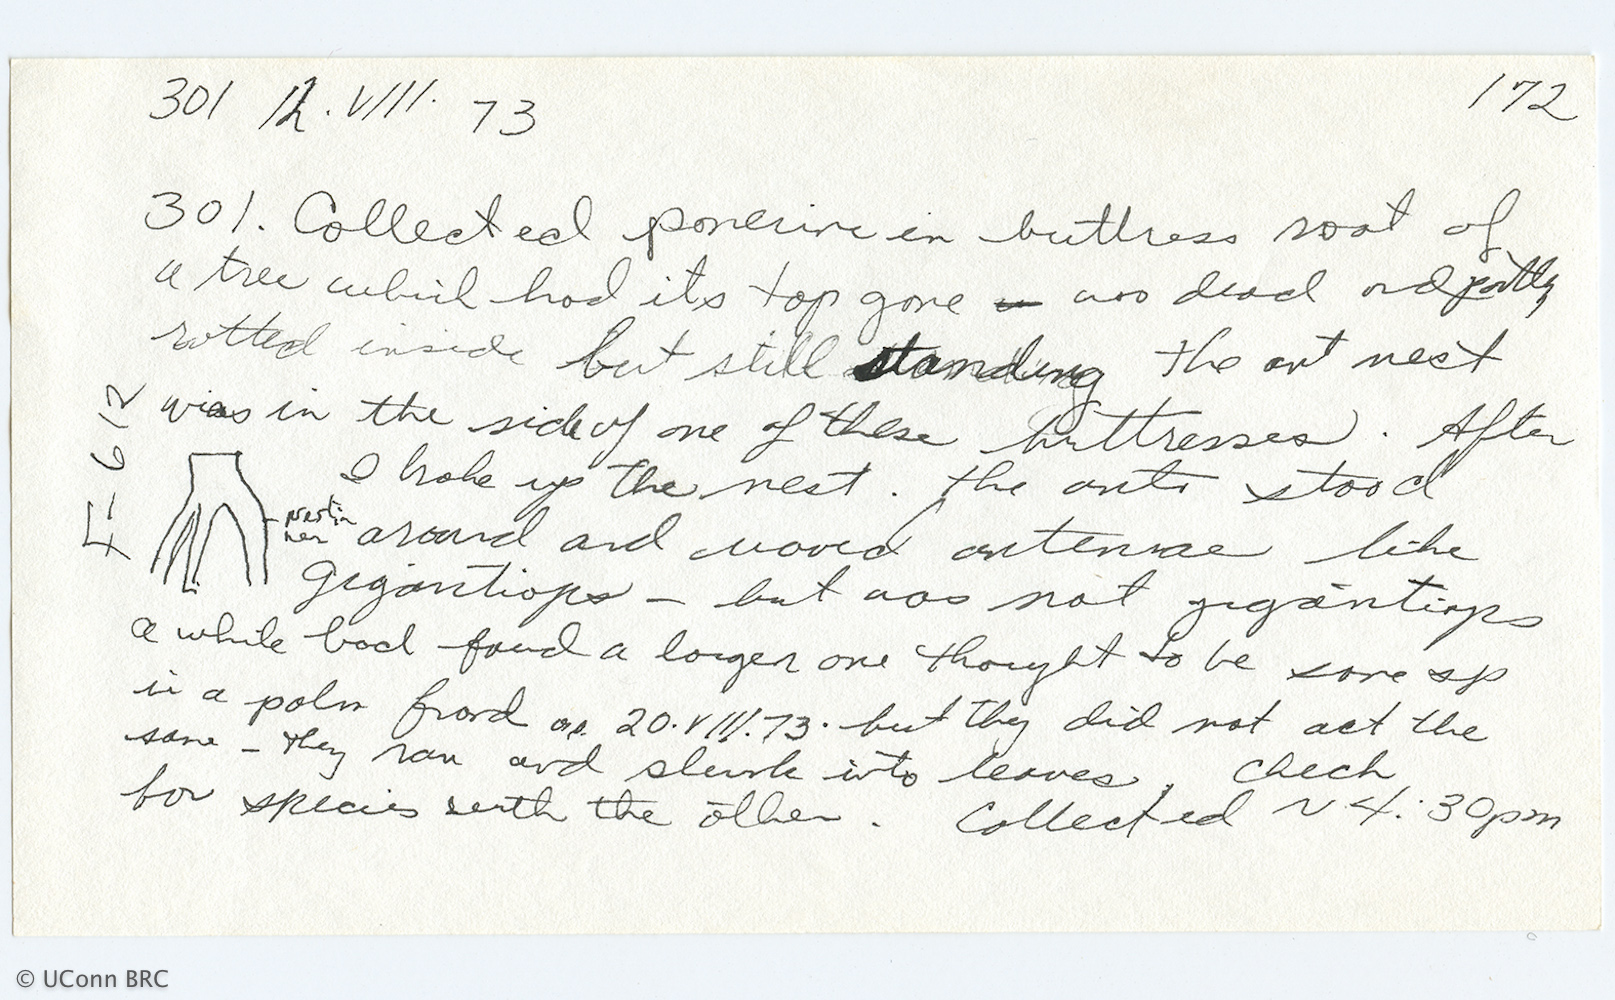 301 12.VIII.73 172
301. Collected ponerine in buttress root of
a tree which had its top gone was dead and partly
rotted inside but still standing The ant nest
was in the side of one of these buttresses. After
I broke up the nest. The ants stood
around and moved antennae like
Gigantiops — but was not gigantiops
a while back found a larger one thought to be same sp
in a palm frond on 20.VIII.73. but they did not act the
same — they ran and slunk into leaves. Check
for species with the other. Collected ~ 4:30pm
F-612
nest in
her
© UConn BRC